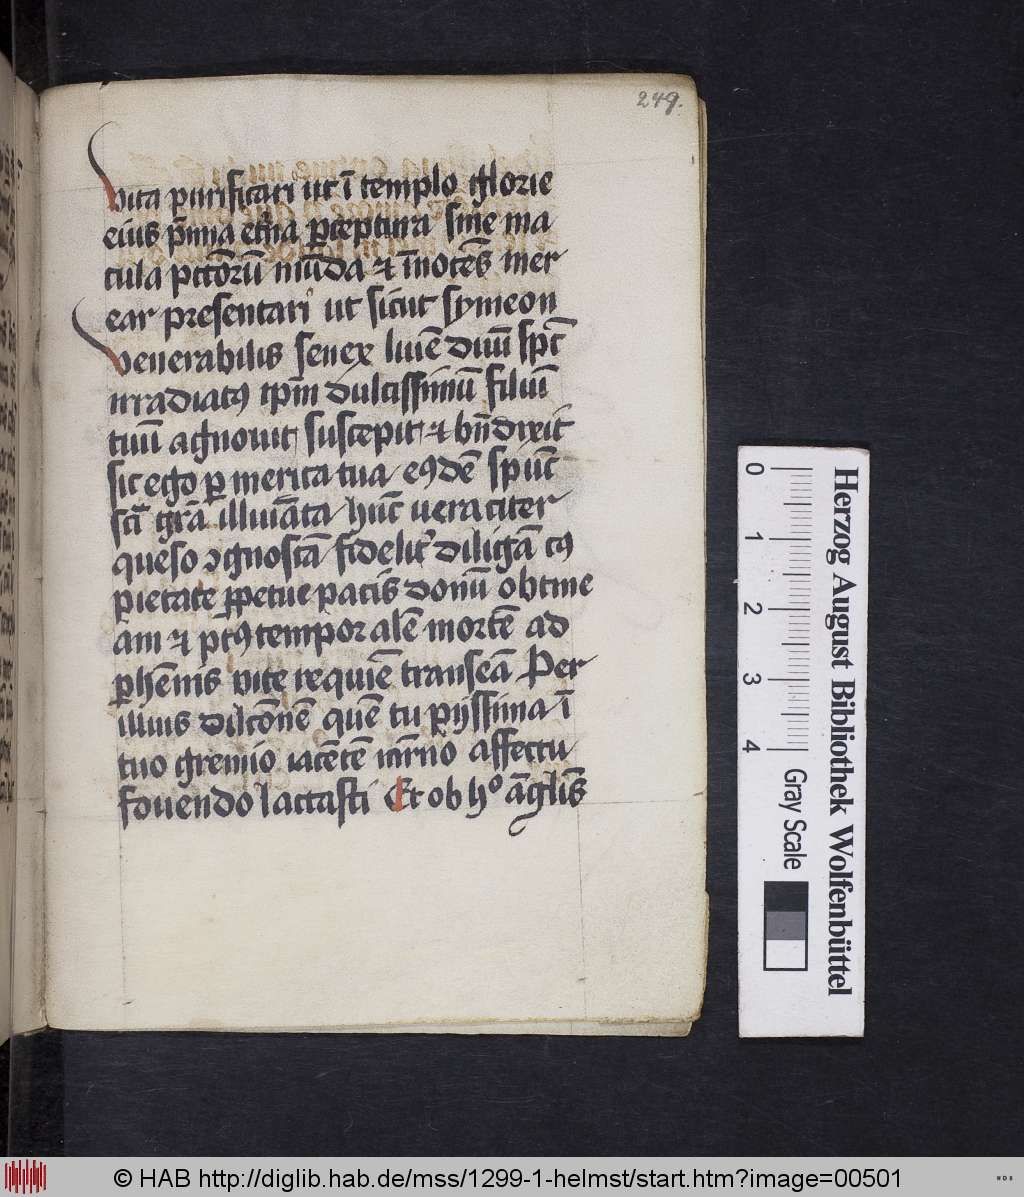 249.
vita purificari ut ī templo glorie
eius p̄mia et̄na p̱ceptura sine ma
cula pctōrū mūda ⁊ īnocēs mer
ear presentari ut sicut symeon
venerabilis senex luīe diuī sp̄c
irradiatꝰ tp̄m dulcissimū filiū
tuū agnouit suscepit ⁊ bn̄dixit
sic ego ꝑ merita tua eꝰdē spūc
scī grā illuīata hūc veraciter
queso ꝯgnoscā fidelitˀ diligā cꝰ
pietate ꝑpetue pacis donū obtine
am ⁊ pꝰ temporalē mortē ad
ꝑhēnis vite requiē transeā Per
illius dilcōnem quē tu pijssima ī
tuo gremio iacētē mr̄no affectu
fouendo lactasti Et ob hᵒ āglīs
Herzog August Bibliothek Wolfenbüttel
0 1 2 3 4
Gray Scale
© HAB http://diglib.hab.de/mss/1299-1-helmst/start.htm?image=00501